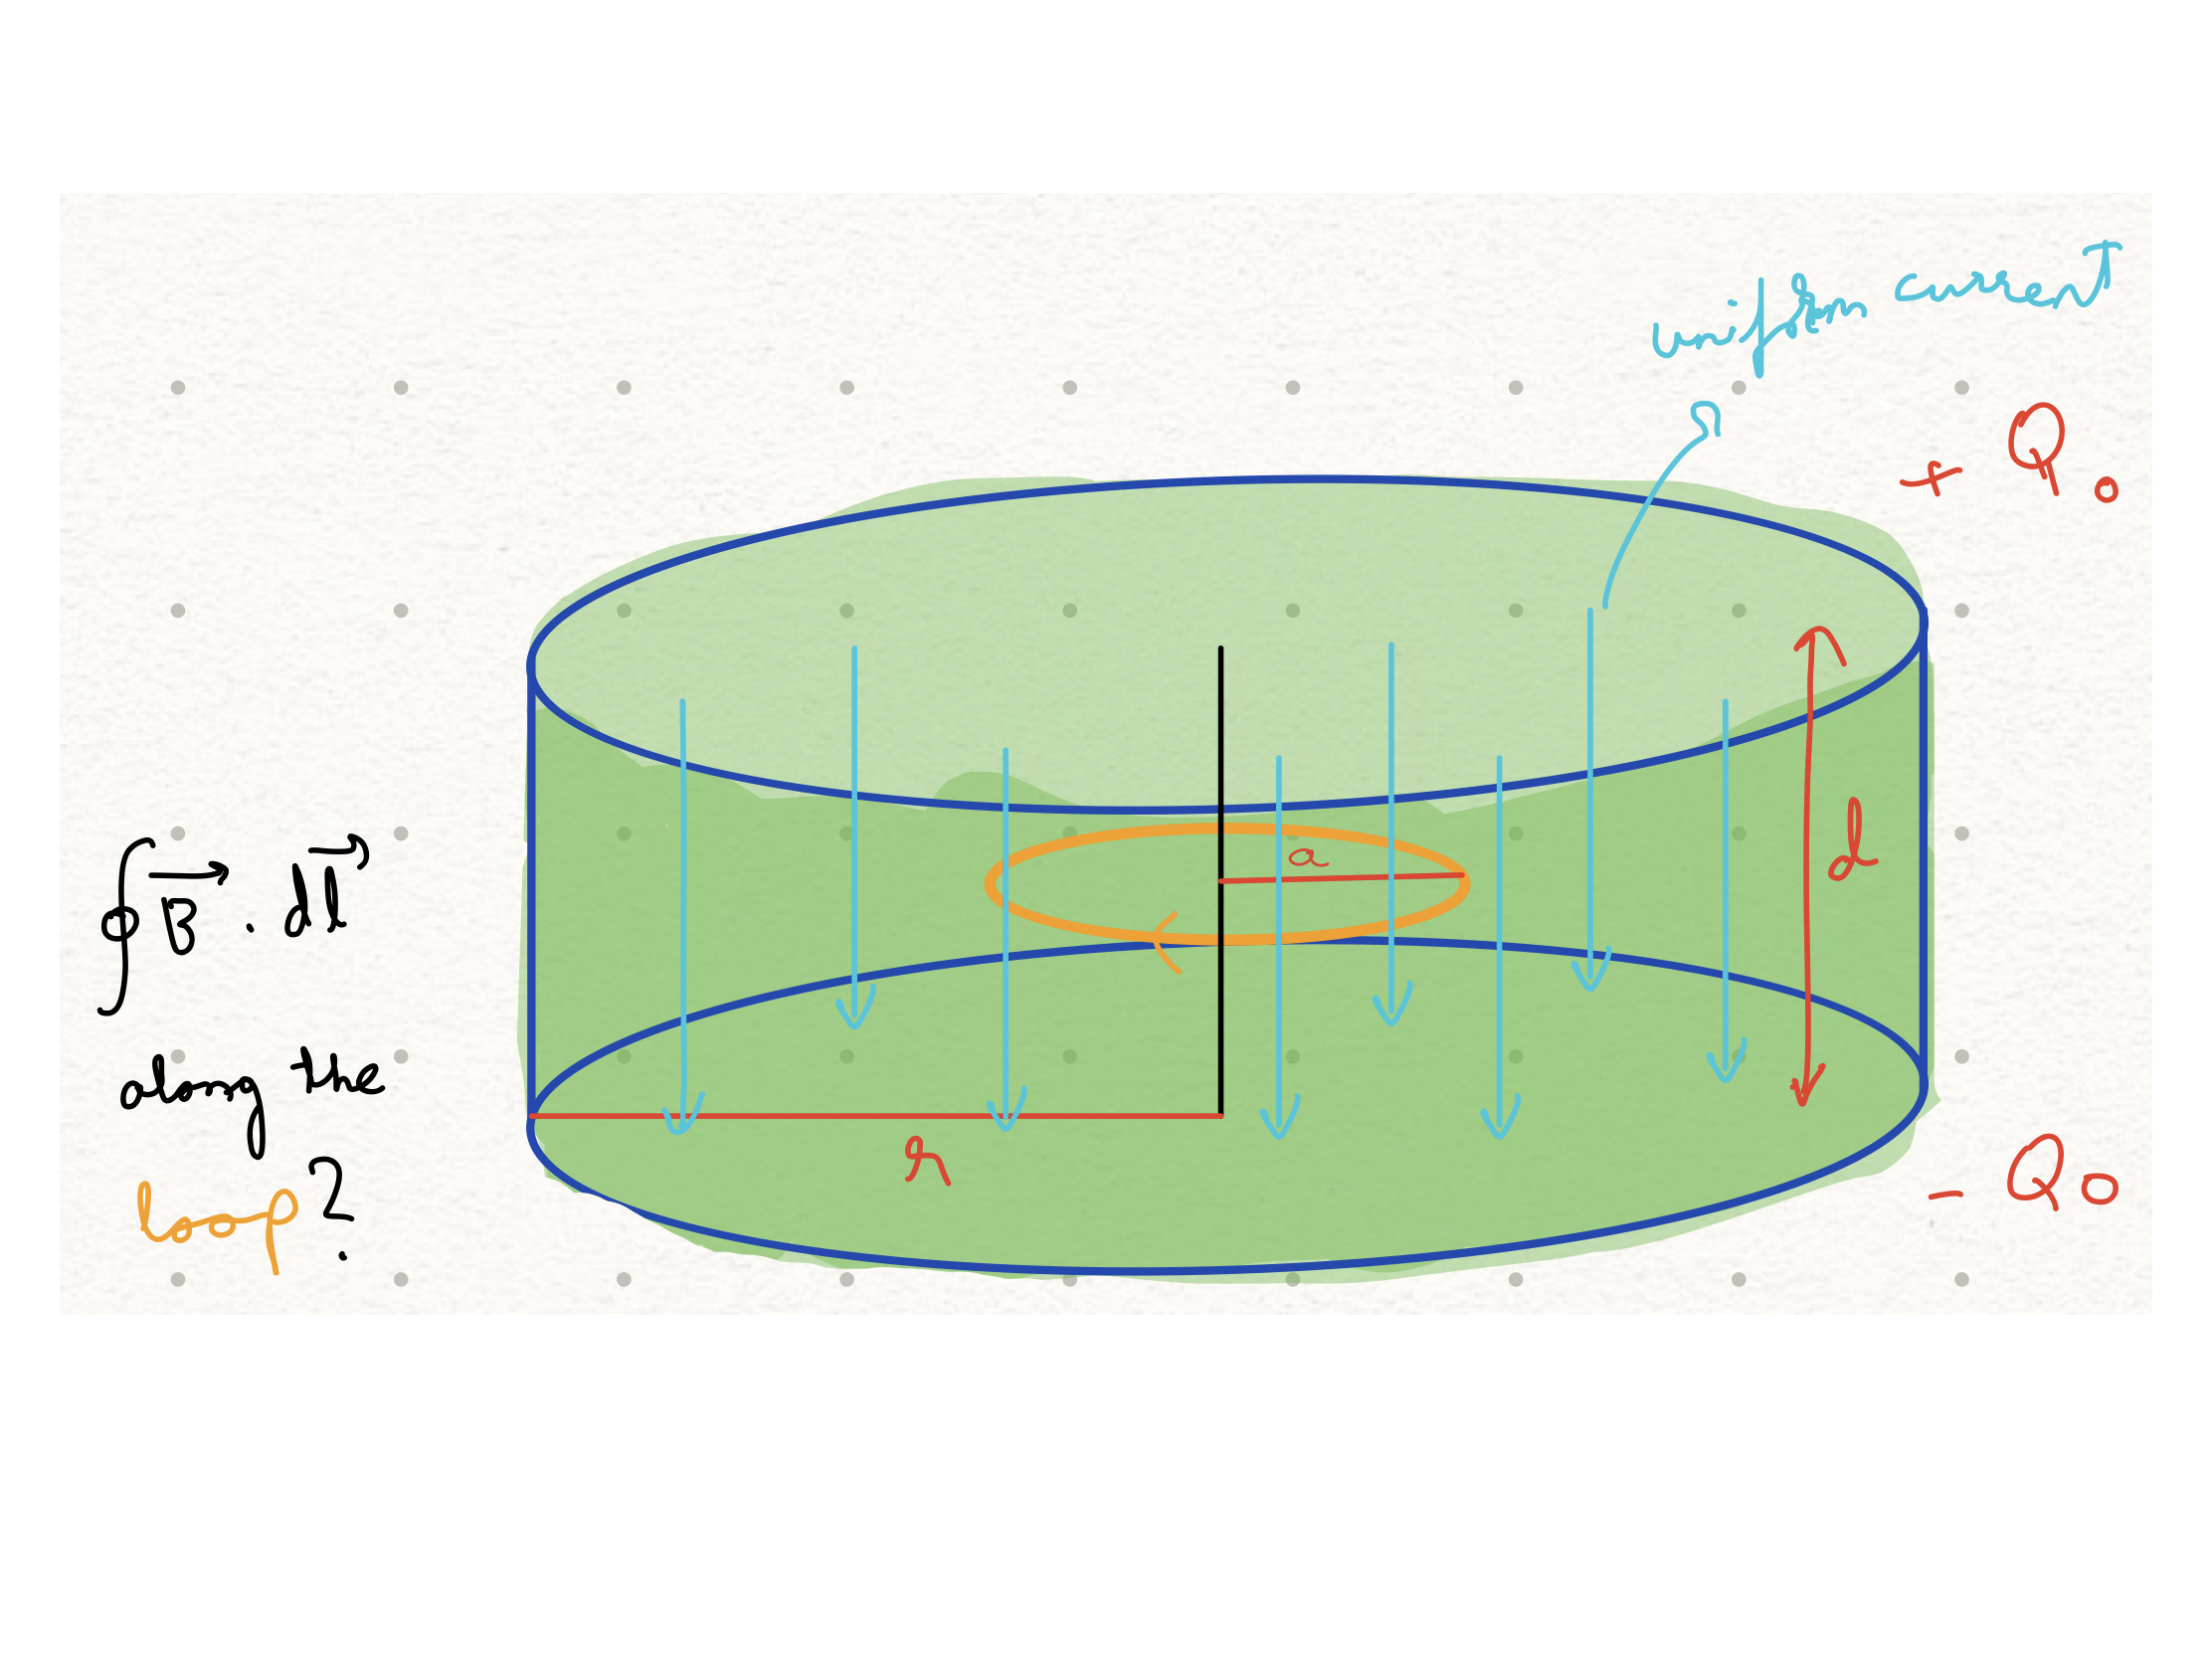 uniform current
+ Q₀
a
d
∮ B⃗ . dl⃗
along the
loop?
r
- Q₀